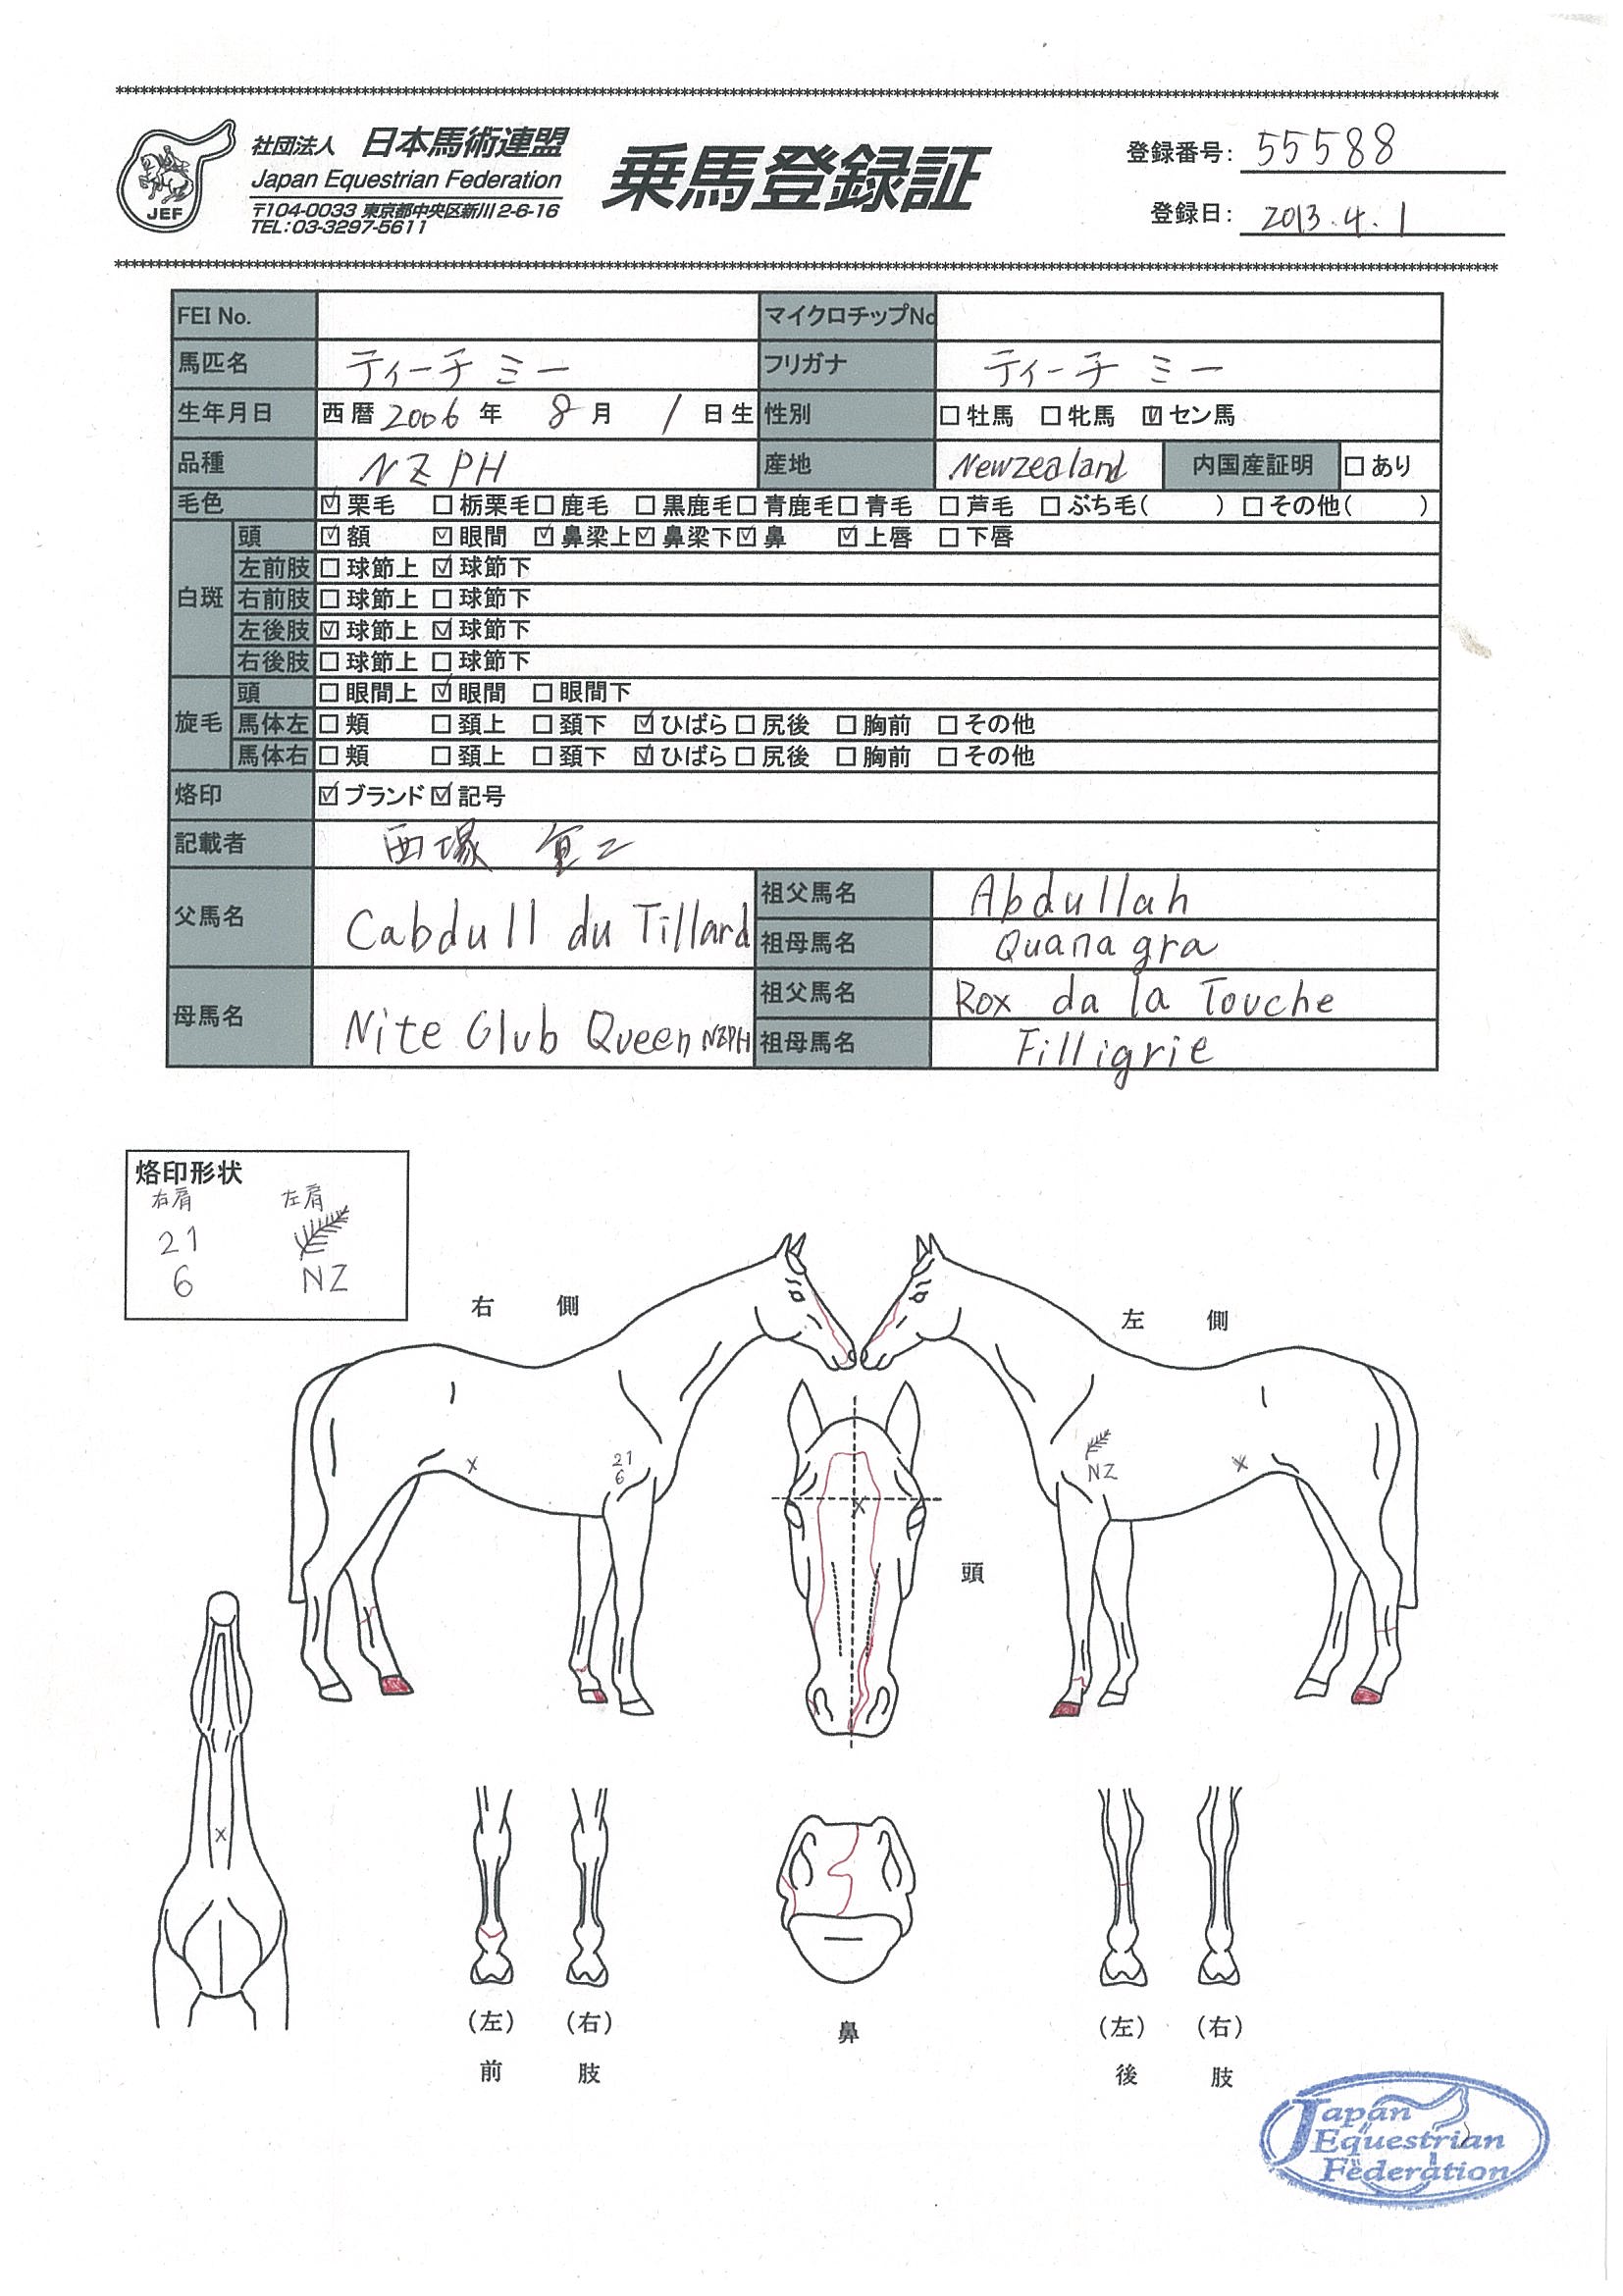 社団法人 日本馬術連盟
Japan Equestrian Federation
〒104-0033 東京都中央区新川2-6-16
TEL:03-3297-5611
JEF
乗馬登録証
登録番号: 55588
登録日: 2013.4.1
FEI No. マイクロチップNo
馬匹名 ティーチ ミー フリガナ ティーチ ミー
生年月日 西暦 2006 年 8 月 1 日生 性別 □牡馬 □牝馬 ☑セン馬
品種 NZPH 産地 Newzealand 内国産証明 □あり
毛色 ☑栗毛 □栃栗毛 □鹿毛 □黒鹿毛 □青鹿毛 □青毛 □芦毛 □ぶち毛( ) □その他( )
白斑 頭 ☑額 ☑眼間 ☑鼻梁上 ☑鼻梁下 ☑鼻 ☑上唇 □下唇
左前肢 □球節上 ☑球節下
右前肢 □球節上 □球節下
左後肢 ☑球節上 ☑球節下
右後肢 □球節上 □球節下
旋毛 頭 □眼間上 ☑眼間 □眼間下
馬体左 □頬 □頚上 □頚下 ☑ひばら □尻後 □胸前 □その他
馬体右 □頬 □頚上 □頚下 ☑ひばら □尻後 □胸前 □その他
烙印 ☑ブランド ☑記号
記載者 西塚
父馬名 Cabdull du Tillard 祖父馬名 Abdullah
祖母馬名 Quanagra
母馬名 Nite Club Queen NZPH 祖父馬名 Rox da la Touche
祖母馬名 Filligrie
烙印形状
右肩 左肩
21
6 NZ
右側 左側
21
6
NZ
頭
(左) (右) 鼻 (左) (右)
前肢 後肢
Japan
Equestrian
Federation